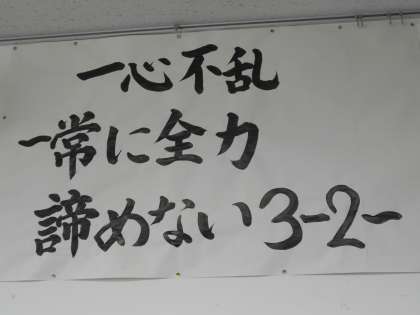 一心不乱
一常に全力
諦めない3-2-